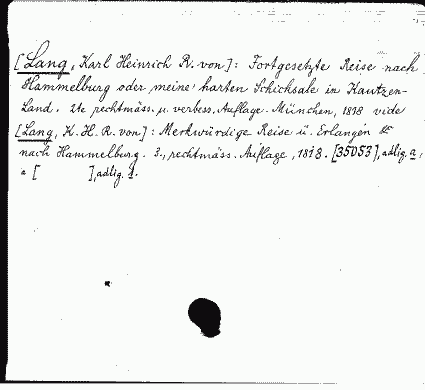 [Lang, Karl Heinrich R. von]: Fortgesetzte Reise nach
Hammelburg oder meine harten Schicksale in Kautzen-
Land. 2te rechtmäss. u. verbess. Auflage. München, 1818 vide
[Lang, K. H. R. von]: Merkwürdige Reise ü. Erlangen etc
nach Hammelburg. 3., rechtmäss. Auflage, 1818. [35053], adlig. a,
a [ ], adlig. 1.